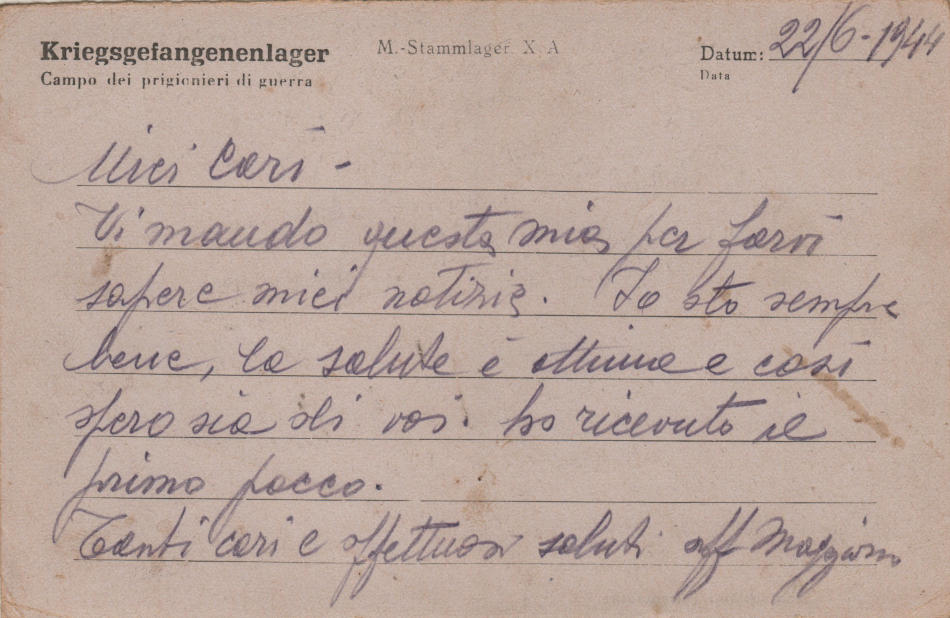 Kriegsgefangenenlager
Campo dei prigionieri di guerra
M.-Stammlager X A
Datum: 22/6-1944
Data
Miei cari -
Vi mando questa mia per farvi
sapere miei notizie. Io sto sempre
bene, la salute è ottima e così
spero sia di voi. ho ricevuto il
primo pacco.
Tanti cari e affettuosi saluti aff